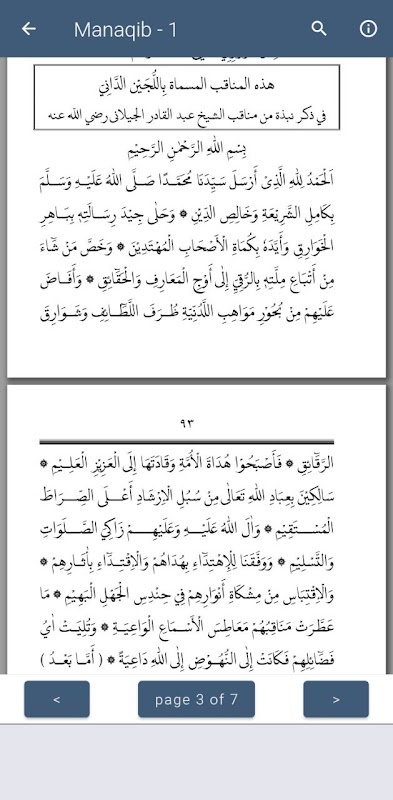 Manaqib - 1
هذه المناقب المسماة بِاللُّجَيْنِ الدَّانِيّ
فى ذكر نبذة من مناقب الشيخ عبد القادر الجيلانى رضي الله عنه
بِسْمِ اللهِ الرَّحْمٰنِ الرَّحِيْمِ
اَلْحَمْدُ لِلهِ الَّذِيْ أَرْسَلَ سَيِّدَنَا مُحَمَّدًا صَلَّى اللهُ عَلَيْهِ وَسَلَّمَ
بِكَامِلِ الشَّرِيْعَةِ وَخَالِصِ الدِّيْنِ ۞ وَحَلَى جِيْدَ رِسَالَتِهٖ بِبَاهِرِ
الْخَوَارِقِ وَأَيَّدَهٗ بِكُمَاةِ الْأَصْحَابِ الْمُهْتَدِيْنَ ۞ وَخَصَّ مَنْ شَآءَ
مِنْ أَتْبَاعِ مِلَّتِهٖ بِالرُّقِيِّ إِلٰى أَوْجِ الْمَعَارِفِ وَالْحَقَآئِقِ ۞ وَأَفَاضَ
عَلَيْهِمْ مِنْ بُحُوْرِ مَوَاهِبِ اللَّدُنِيَّةِ طُرَفَ اللَّطَآئِفِ وَشَوَارِقَ
٩٣
الرَّقَآئِقِ ۞ فَأَصْبَحُوْا هُدَاةَ الْأُمَّةِ وَقَادَتَهَا إِلَى الْعَزِيْزِ الْعَلِيْمِ ۞
سَالِكِيْنَ بِعِبَادِ اللهِ تَعَالٰى مِنْ سُبُلِ الْإِرْشَادِ أَعْلَى الصِّرَاطَ
الْمُسْتَقِيْمِ ۞ وَالَ اللهُ عَلَيْهِ وَعَلَيْهِمْ زَاكِيَ الصَّلَوَاتِ
وَالتَّسْلِيْمِ ۞ وَوَفَّقَنَا لِلْاِهْتِدَآءِ بِهُدَاهُمْ وَالْاِقْتِدَآءِ بِاٰثَارِهِمْ ۞
وَالْاِقْتِبَاسِ مِنْ مِشْكَاةِ أَنْوَارِهِمْ فِيْ حِنْدِسِ الْجَهْلِ الْبَهِيْمِ ۞ مَا
عَطَّرَتْ مَنَاقِبُهُمْ مَعَاطِسَ الْأَسْمَاعِ الْوَاعِيَةِ ۞ وَتُلِيَتْ اٰيُ
فَضَآئِلِهِمْ فَكَانَتْ إِلَى النُّهُوْضِ إِلَى اللهِ دَاعِيَةً ۞ ( أَمَّا بَعْدُ )
< page 3 of 7 >